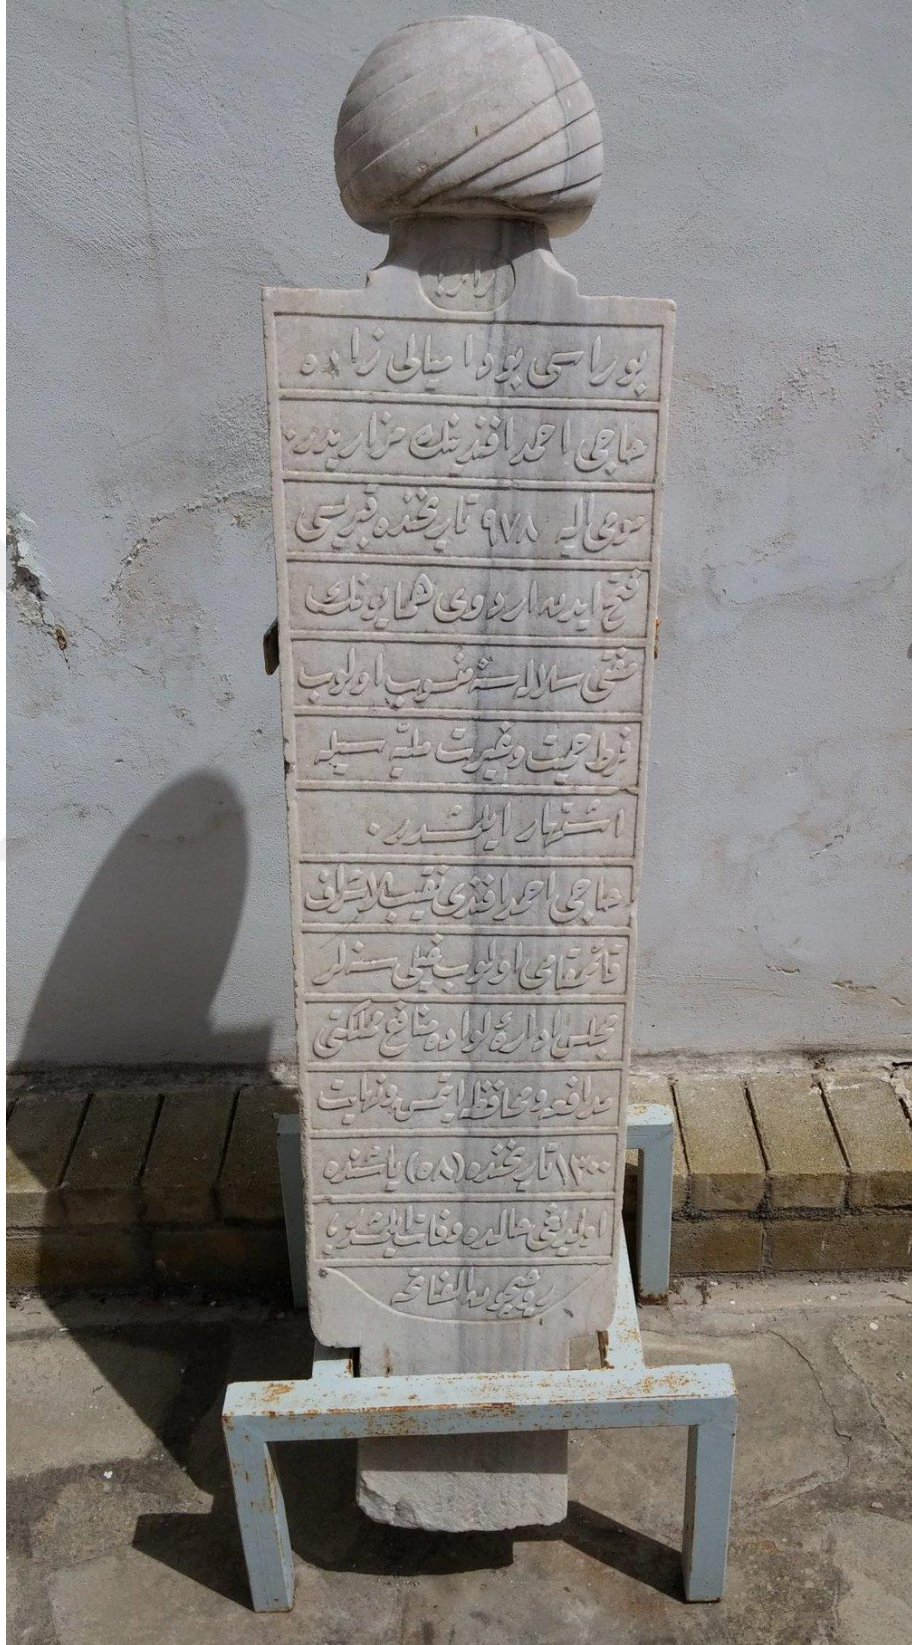 زائرا
بوراسی بودامیالی زاده
حاجی احمد افندینك مزاریدر.
مومی الیه ٩٧٨ تاریخنده قبریسی
فتح ایدن اردوی همایونك
مفتی سلاله سنه منسوب اولوب
فرط حمیت وغیرت ملیه سیله
اشتهار ایلمشدر.
حاجی احمد افندی نقیب الاشراف
قائمقامی اولوب خیلی سنه لر
مجلس ادارۀ لواده منافع مملكتی
مدافعه ومحافظه ایتمش ونهایت
١٣٠٠ تاریخنده (٥٨) یاشنده
اولدیغی حالده وفات ایلمشدر
روحیچون الفاتحه